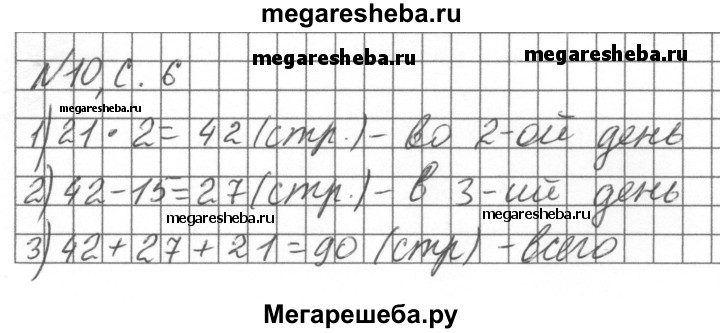 megaresheba.ru
№10, с. 6
megaresheba.ru
megaresheba.ru
megaresheba.ru
1) 21 · 2 = 42 (стр.) - во 2-ой день
2) 42 - 15 = 27 (стр.) - в 3-ий день
megaresheba.ru
megaresheba.ru
3) 42 + 27 + 21 = 90 (стр) - всего
Мегарешеба.ру